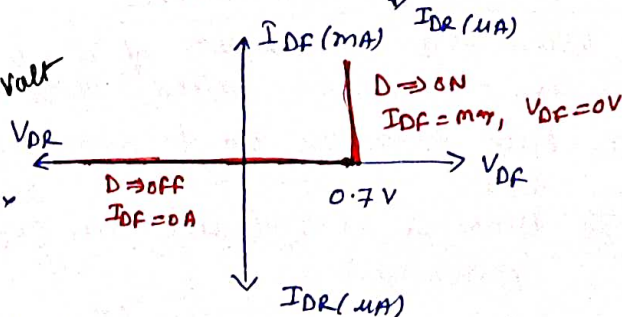 IDR (μA)
IDF (mA)
Valt
D ⇒ ON
IDF = max, VDF = 0V
VDR
VDF
D ⇒ OFF
IDF = 0A
0.7 V
IDR (μA)